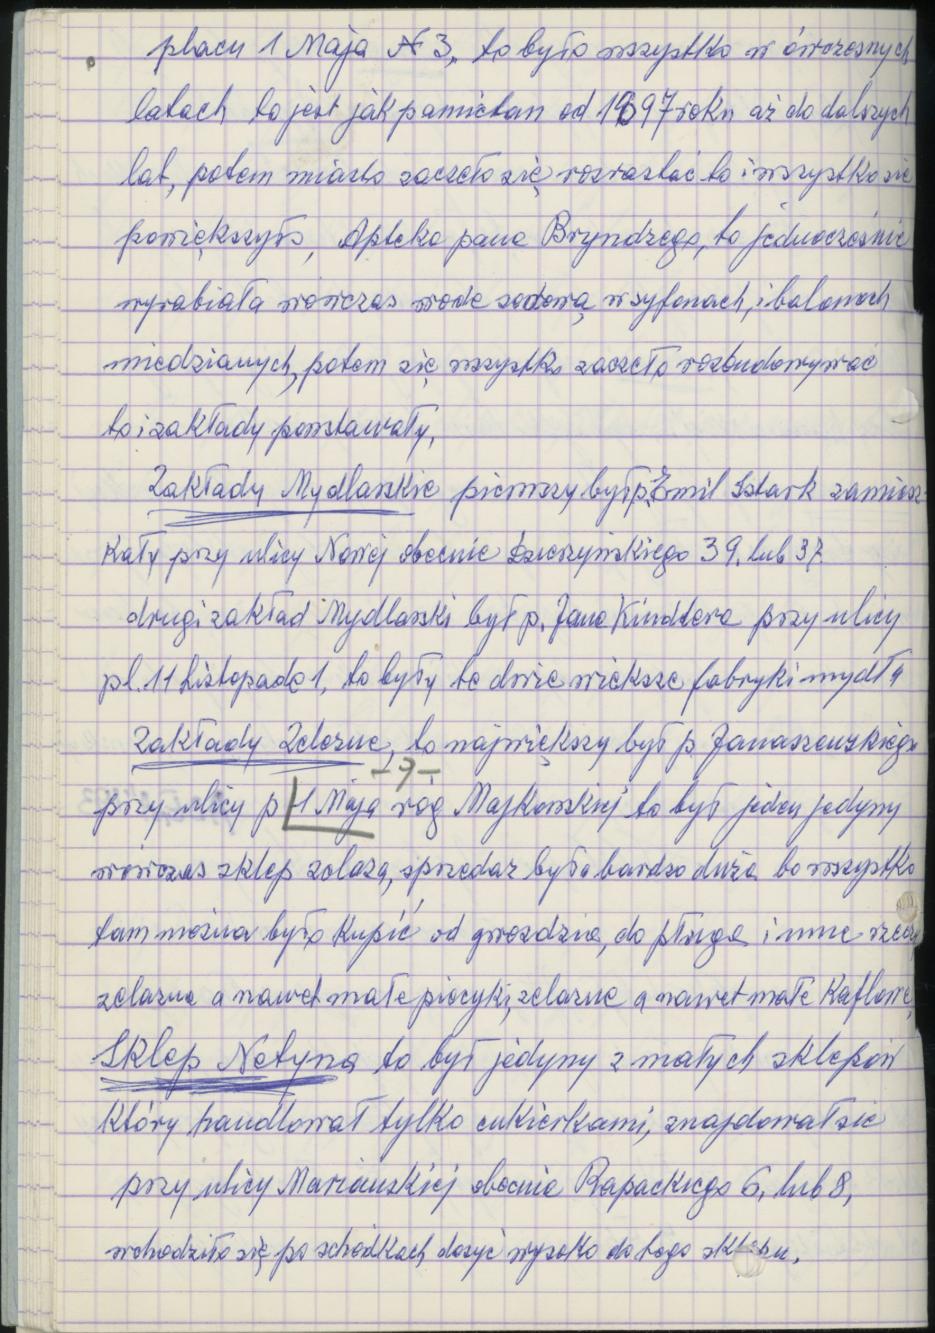 placu 1 Maja N 3, to było wszystko w ówczesnych
latach to jest jak pamiętam od 1897 roku aż do dalszych
lat, potem miasto zaczeło się rozrastać to i wszystko sie
powiększyło, Apteka pana Bryndzego, to jednocześnie
wyrabiała wówczas wode sodową w syfonach, i balonach
miedzianych, potem się wszystko zaczeło rozbudowywać
to i zakłady powstawały,
Zakłady Mydlarskie pierwszy był p. Emil Sztark zamiesz-
kały przy ulicy Nowej obecnie 39, lub 37.
drugi zakład Mydlarski był p. Jana Kindlera przy ulicy
pl. 11 Listopada 1, to były te dwie większe fabryki mydła
Zakłady Zelazne, to największy był p. Janaszewskiego
-7-
przy ulicy pl 1 Maja róg Majkowskiej to był jeden jedyny
wówczas sklep zelaza, sprzedaż była bardzo duża bo wszystko
tam można było kupić od gwozdzia, do pługa i inne rzeczy
zelazne a nawet małe piecyki, zelazne a nawet małe kaflowe,
Sklep Netyna to był jedyny z małych sklepów
który handlował tylko cukierkami, znajdował sie
przy ulicy Mariańskiej obecnie Rapackiego 6, lub 8,
wchodziło się po schodkach dosyć wysoko do tego sklepu,